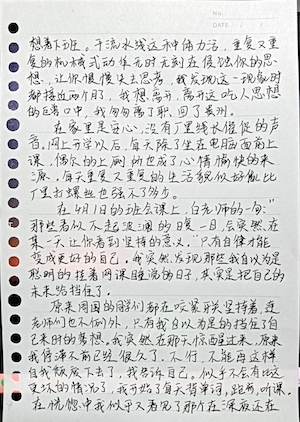 No.
DATE
想着下班。干流水线这种体力活，重复又重
复的机械式动作无时无刻在侵蚀你的思
想，让你慢慢失去思考，我发现这一现象时
都接近两个月了，我想离开，离开这吃人思想
的巨口中，我匆匆离了职，回了贵州。
在家里是安心，没有厂里线长催促的声
音。网上开学以后，每天除了坐在电脑面前上
课，偶尔的上厕所也成了心情愉快的来
源。每天重复又重复的生活貌似好像比
厂里打螺丝也强不了多少。
在4月1日的班会课上，白老师的一句：“
那些看似不起波澜的日复一日，会突然在
某一天让你看到坚持的意义。”只有自律才能
变成更好的自己。我突然发现那些我自以为是
聪明的挂着网课睡觉的日子，其实是把自己的
未来给挡住了。
原来周围的同学们都在咬紧牙关坚持着，连
老师们也不例外，只有我自以为是的挡住了自
己来时的梦想。我突然在那天惊醒过来，原来
我停滞不前已经很久了。不行，不能再这样
自我颓废下去了，我告诉自己。似乎不会有比这
更坏的情况了，我开始了每天背单词，跑步，听课。
在恍惚中我似乎又看见了那个在深夜还在